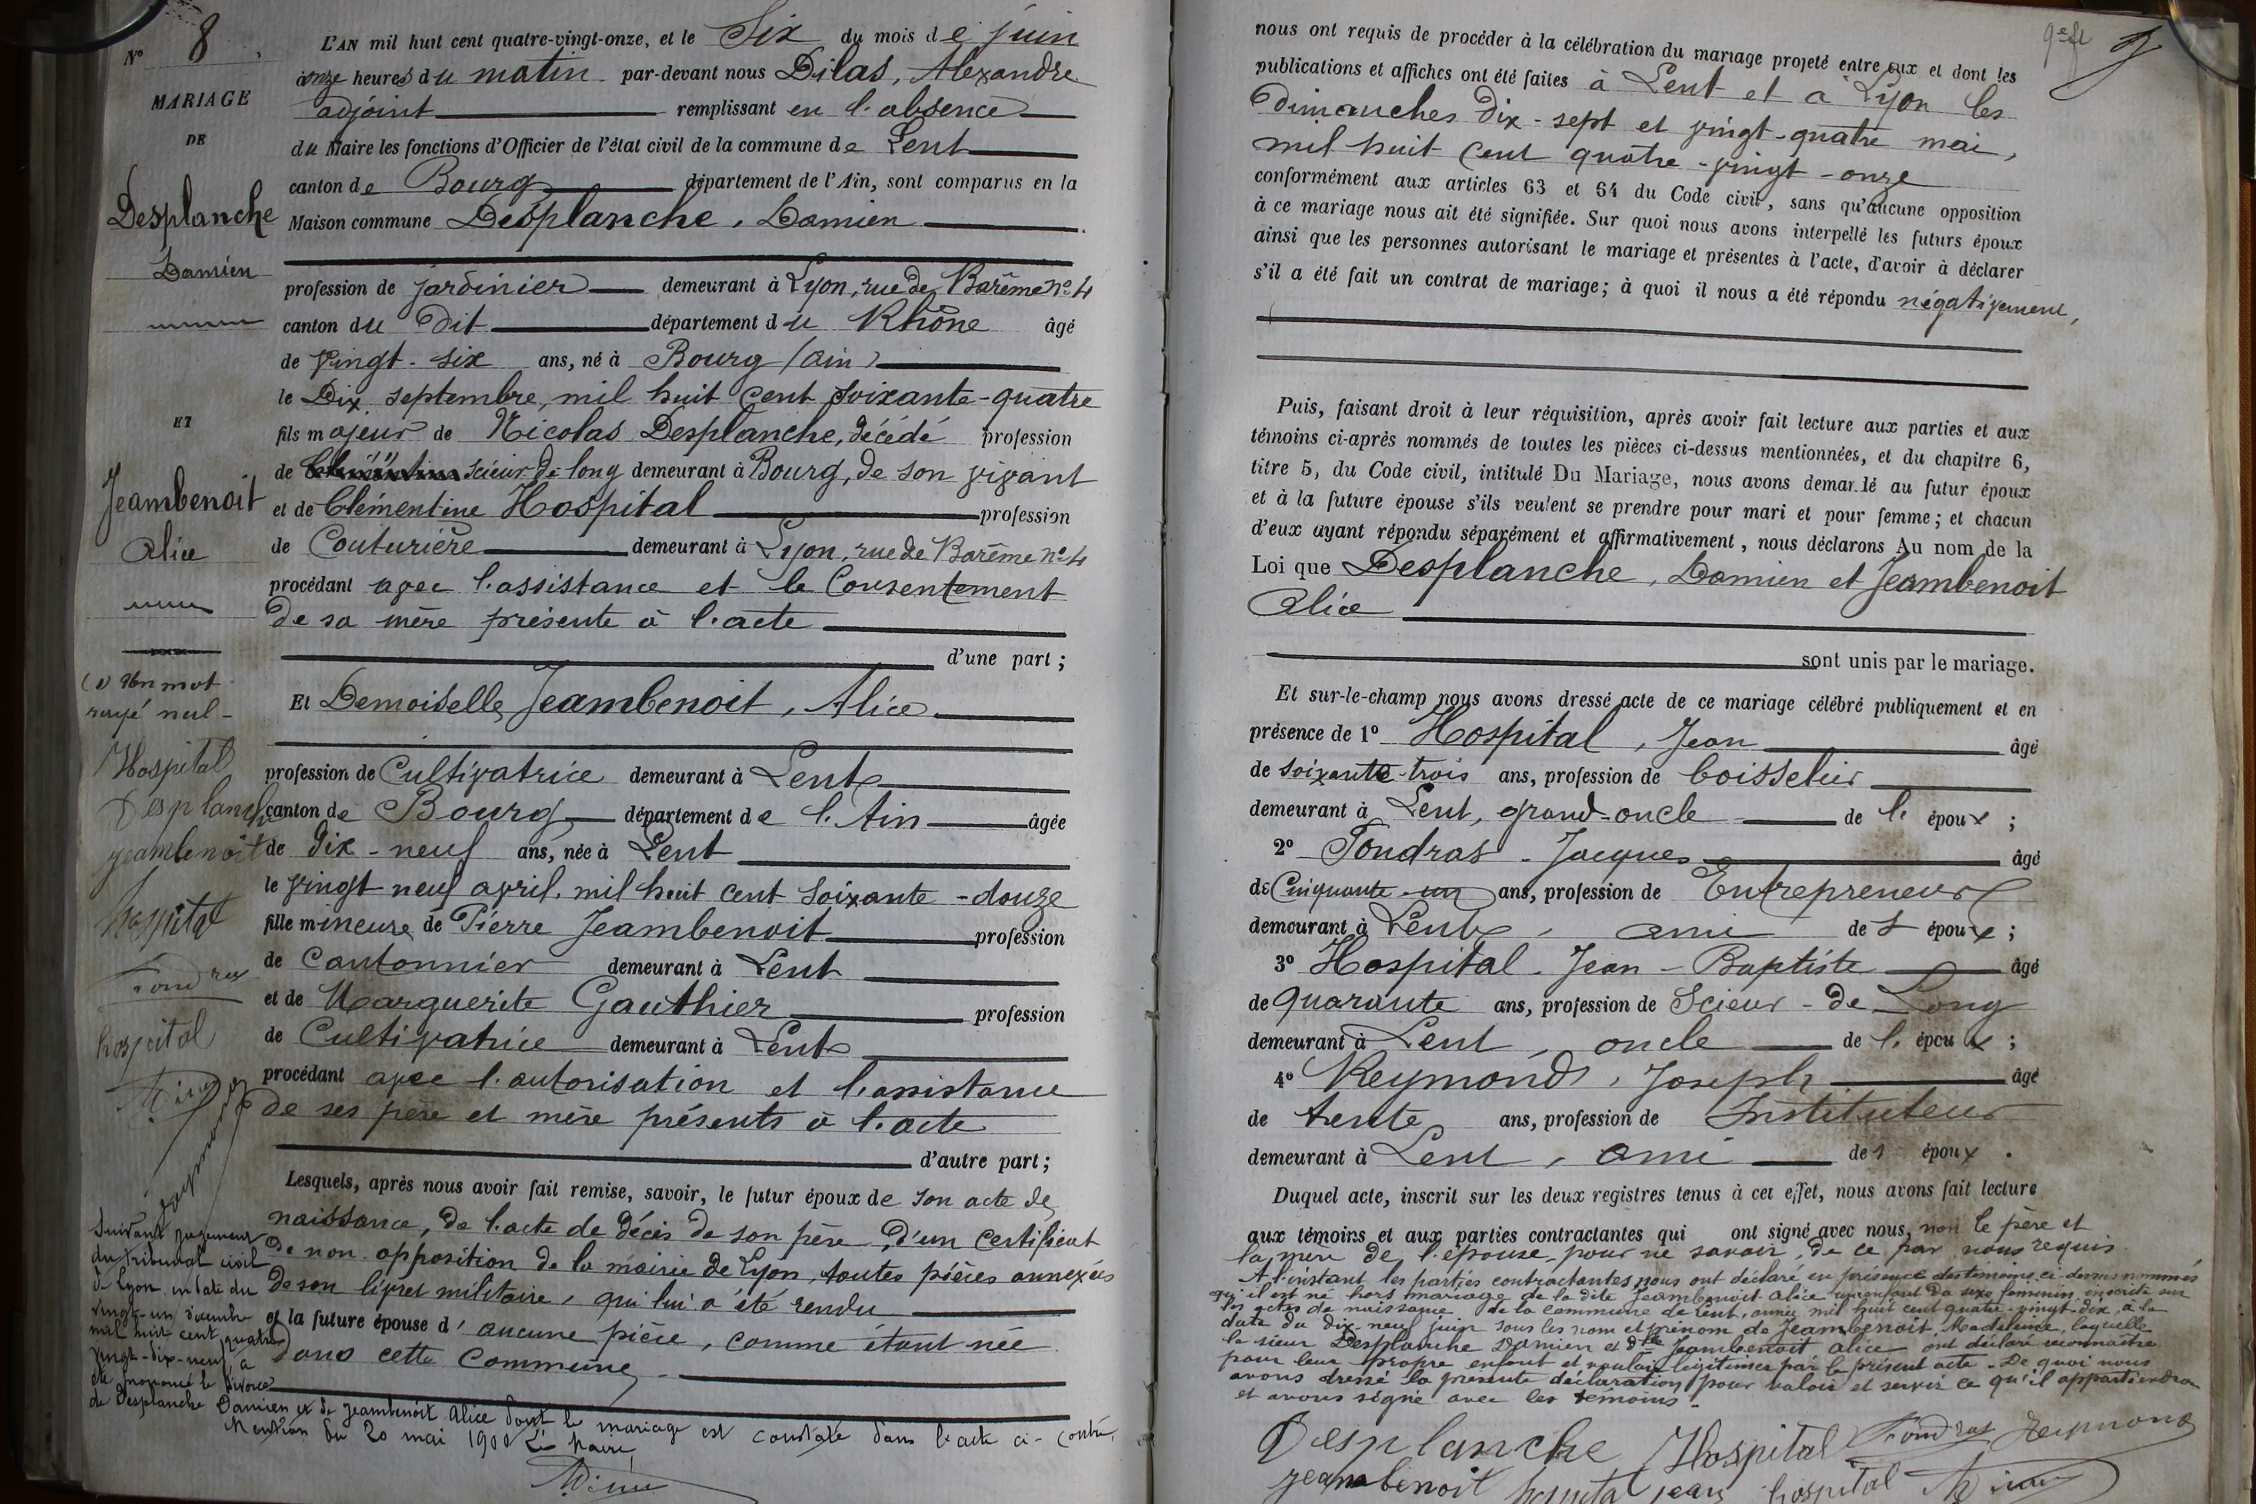 N° 8
MARIAGE
DE
Desplanche
Damien
ET
Jeambenoit
Alice
(1) Un mot
rayé nul -
Hospital
Desplanche
jeambenoit
hospital
Fondras
hospital
Reymond
Suivant jugement
du tribunal civil
de Lyon en date du
vingt-un
mil huit cent quatre
vingt-dix-neuf, a
été prononcé le divorce
de Desplanche Damien et de Jeambenoit Alice dont le mariage est constaté dans l'acte ci-contre.
Mention du 20 mai 1900 Le maire
L'AN mil huit cent quatre-vingt-onze, et le Six du mois de juin
à onze heures du matin par-devant nous Dilas, Alexandre
adjoint remplissant en l'absence
du Maire les fonctions d'Officier de l'état civil de la commune de Lent
canton de Bourg département de l'Ain, sont comparus en la
Maison commune Desplanche, Damien
profession de jardinier demeurant à Lyon, rue de Barême n° 4
canton du Dit département du Rhône âgé
de vingt-six ans, né à Bourg (ain)
le Dix septembre, mil huit cent soixante-quatre
fils majeur de Nicolas Desplanche, décédé profession
de scieur de long demeurant à Bourg, de son vivant
et de Clémentine Hospital profession
de Couturière demeurant à Lyon, rue de Barême n° 4
procédant avec l'assistance et le Consentement
de sa mère présente à l'acte
d'une part ;
Et Demoiselle Jeambenoit, Alice
profession de Cultivatrice demeurant à Lent
canton de Bourg département de l'Ain âgée
de dix-neuf ans, née à Lent
le vingt neuf avril, mil huit cent soixante-douze
fille mineure de Pierre Jeambenoit profession
de Cantonnier demeurant à Lent
et de Marguerite Gauthier profession
de Cultivatrice demeurant à Lent
procédant avec l'autorisation et l'assistance
de ses père et mère présents à l'acte
d'autre part ;
Lesquels, après nous avoir fait remise, savoir, le futur époux de son acte de
naissance, de l'acte de décès de son père, d'un certificat
de non opposition de la mairie de Lyon, toutes pièces annexées
de son livret militaire, qui lui a été rendu
et la future épouse d'aucune pièce, comme étant née
dans cette commune
nous ont requis de procéder à la célébration du mariage projeté entre eux et dont les
publications et affiches ont été faites à Lent et à Lyon les
dimanches dix-sept et vingt-quatre mai,
mil huit cent quatre-vingt-onze
conformément aux articles 63 et 64 du Code civil, sans qu'aucune opposition
à ce mariage nous ait été signifiée. Sur quoi nous avons interpellé les futurs époux
ainsi que les personnes autorisant le mariage et présentes à l'acte, d'avoir à déclarer
s'il a été fait un contrat de mariage; à quoi il nous a été répondu négativement,
Puis, faisant droit à leur réquisition, après avoir fait lecture aux parties et aux
témoins ci-après nommés de toutes les pièces ci-dessus mentionnées, et du chapitre 6,
titre 5, du Code civil, intitulé Du Mariage, nous avons demandé au futur époux
et à la future épouse s'ils veulent se prendre pour mari et pour femme; et chacun
d'eux ayant répondu séparément et affirmativement, nous déclarons Au nom de la
Loi que Desplanche, Damien et Jeambenoit
Alice
sont unis par le mariage.
Et sur-le-champ nous avons dressé acte de ce mariage célébré publiquement et en
présence de 1° Hospital, Jean âgé
de soixante-trois ans, profession de boisselier
demeurant à Lent, grand-oncle de l'époux ;
2° Fondras - Jacques âgé
de Cinquante-un ans, profession de Entrepreneur
demeurant à Lent, ami de l'époux ;
3° Hospital - Jean-Baptiste âgé
de quarante ans, profession de Scieur-de Long
demeurant à Lent, oncle de l'époux ;
4° Reymond, Joseph âgé
de trente ans, profession de Instituteur
demeurant à Lent, ami de l'époux.
Duquel acte, inscrit sur les deux registres tenus à cet effet, nous avons fait lecture
aux témoins et aux parties contractantes qui ont signé avec nous, non le père et
la mère de l'épouse pour ne savoir, de ce par nous requis
A l'instant les parties contractantes nous ont déclaré en présence des témoins ci-dessus nommés
qu'il est né hors mariage de la dite Jeambenoit Alice un enfant du sexe féminin inscrite sur
les actes de naissance de la commune de Lent, année mil huit cent quatre-vingt-dix, à la
date du dix-neuf juin sous les nom et prénom de Jeambenoit, Madeleine, laquelle
le sieur Desplanche Damien et Dlle Jeambenoit Alice ont déclaré reconnaître
pour leur propre enfant et vouloir légitimer par le présent acte - De quoi nous
avons dressé la présente déclaration pour valoir et servir ce qu'il appartiendra
et avons signé avec les témoins
Desplanche Hospital Fondras Reymond
jeambenoit hospital jean hospital